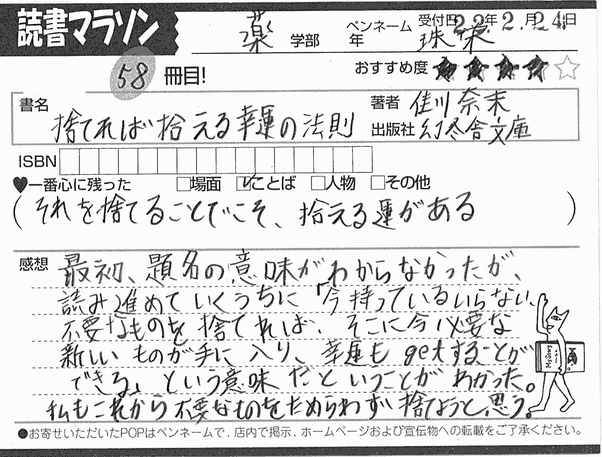 読書マラソン
薬 学部 年 ペンネーム 珠栄 受付日22年2月24日
58 冊目! おすすめ度 ★★★★☆
書名 捨てれば拾える幸運の法則
著者 佳川奈未
出版社 幻冬舎文庫
ISBN
♥一番心に残った □場面 ☑ことば □人物 □その他
(それを捨てることでこそ、拾える運がある)
感想 最初、題名の意味がわからなかったが、
読み進めていくうちに「今持っているいらない
不要なものを捨てれば、そこに今必要な
新しいものが手に入り、幸運もgetすることが
できる」という意味だということがわかった。
私もこれから不要なものをためらわず捨てようと思う。
●お寄せいただいたPOPはペンネームで、店内で掲示、ホームページおよび宣伝物への転載をご了承ください。